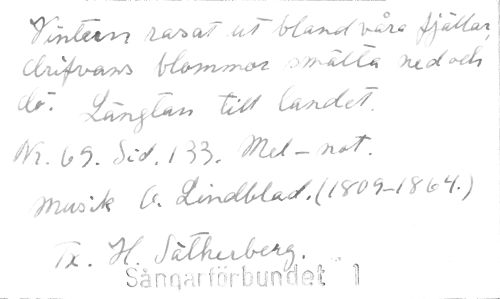 Vintern rasat ut bland våra fjällar,
drifvans blommor smälta ned och
dö. Längtan till landet.
Nr. 69. Sid. 133. Mel-not.
Musik O. Lindblad. (1809-1864.)
Tx. H. Sätherberg.
Sångarförbundet 1